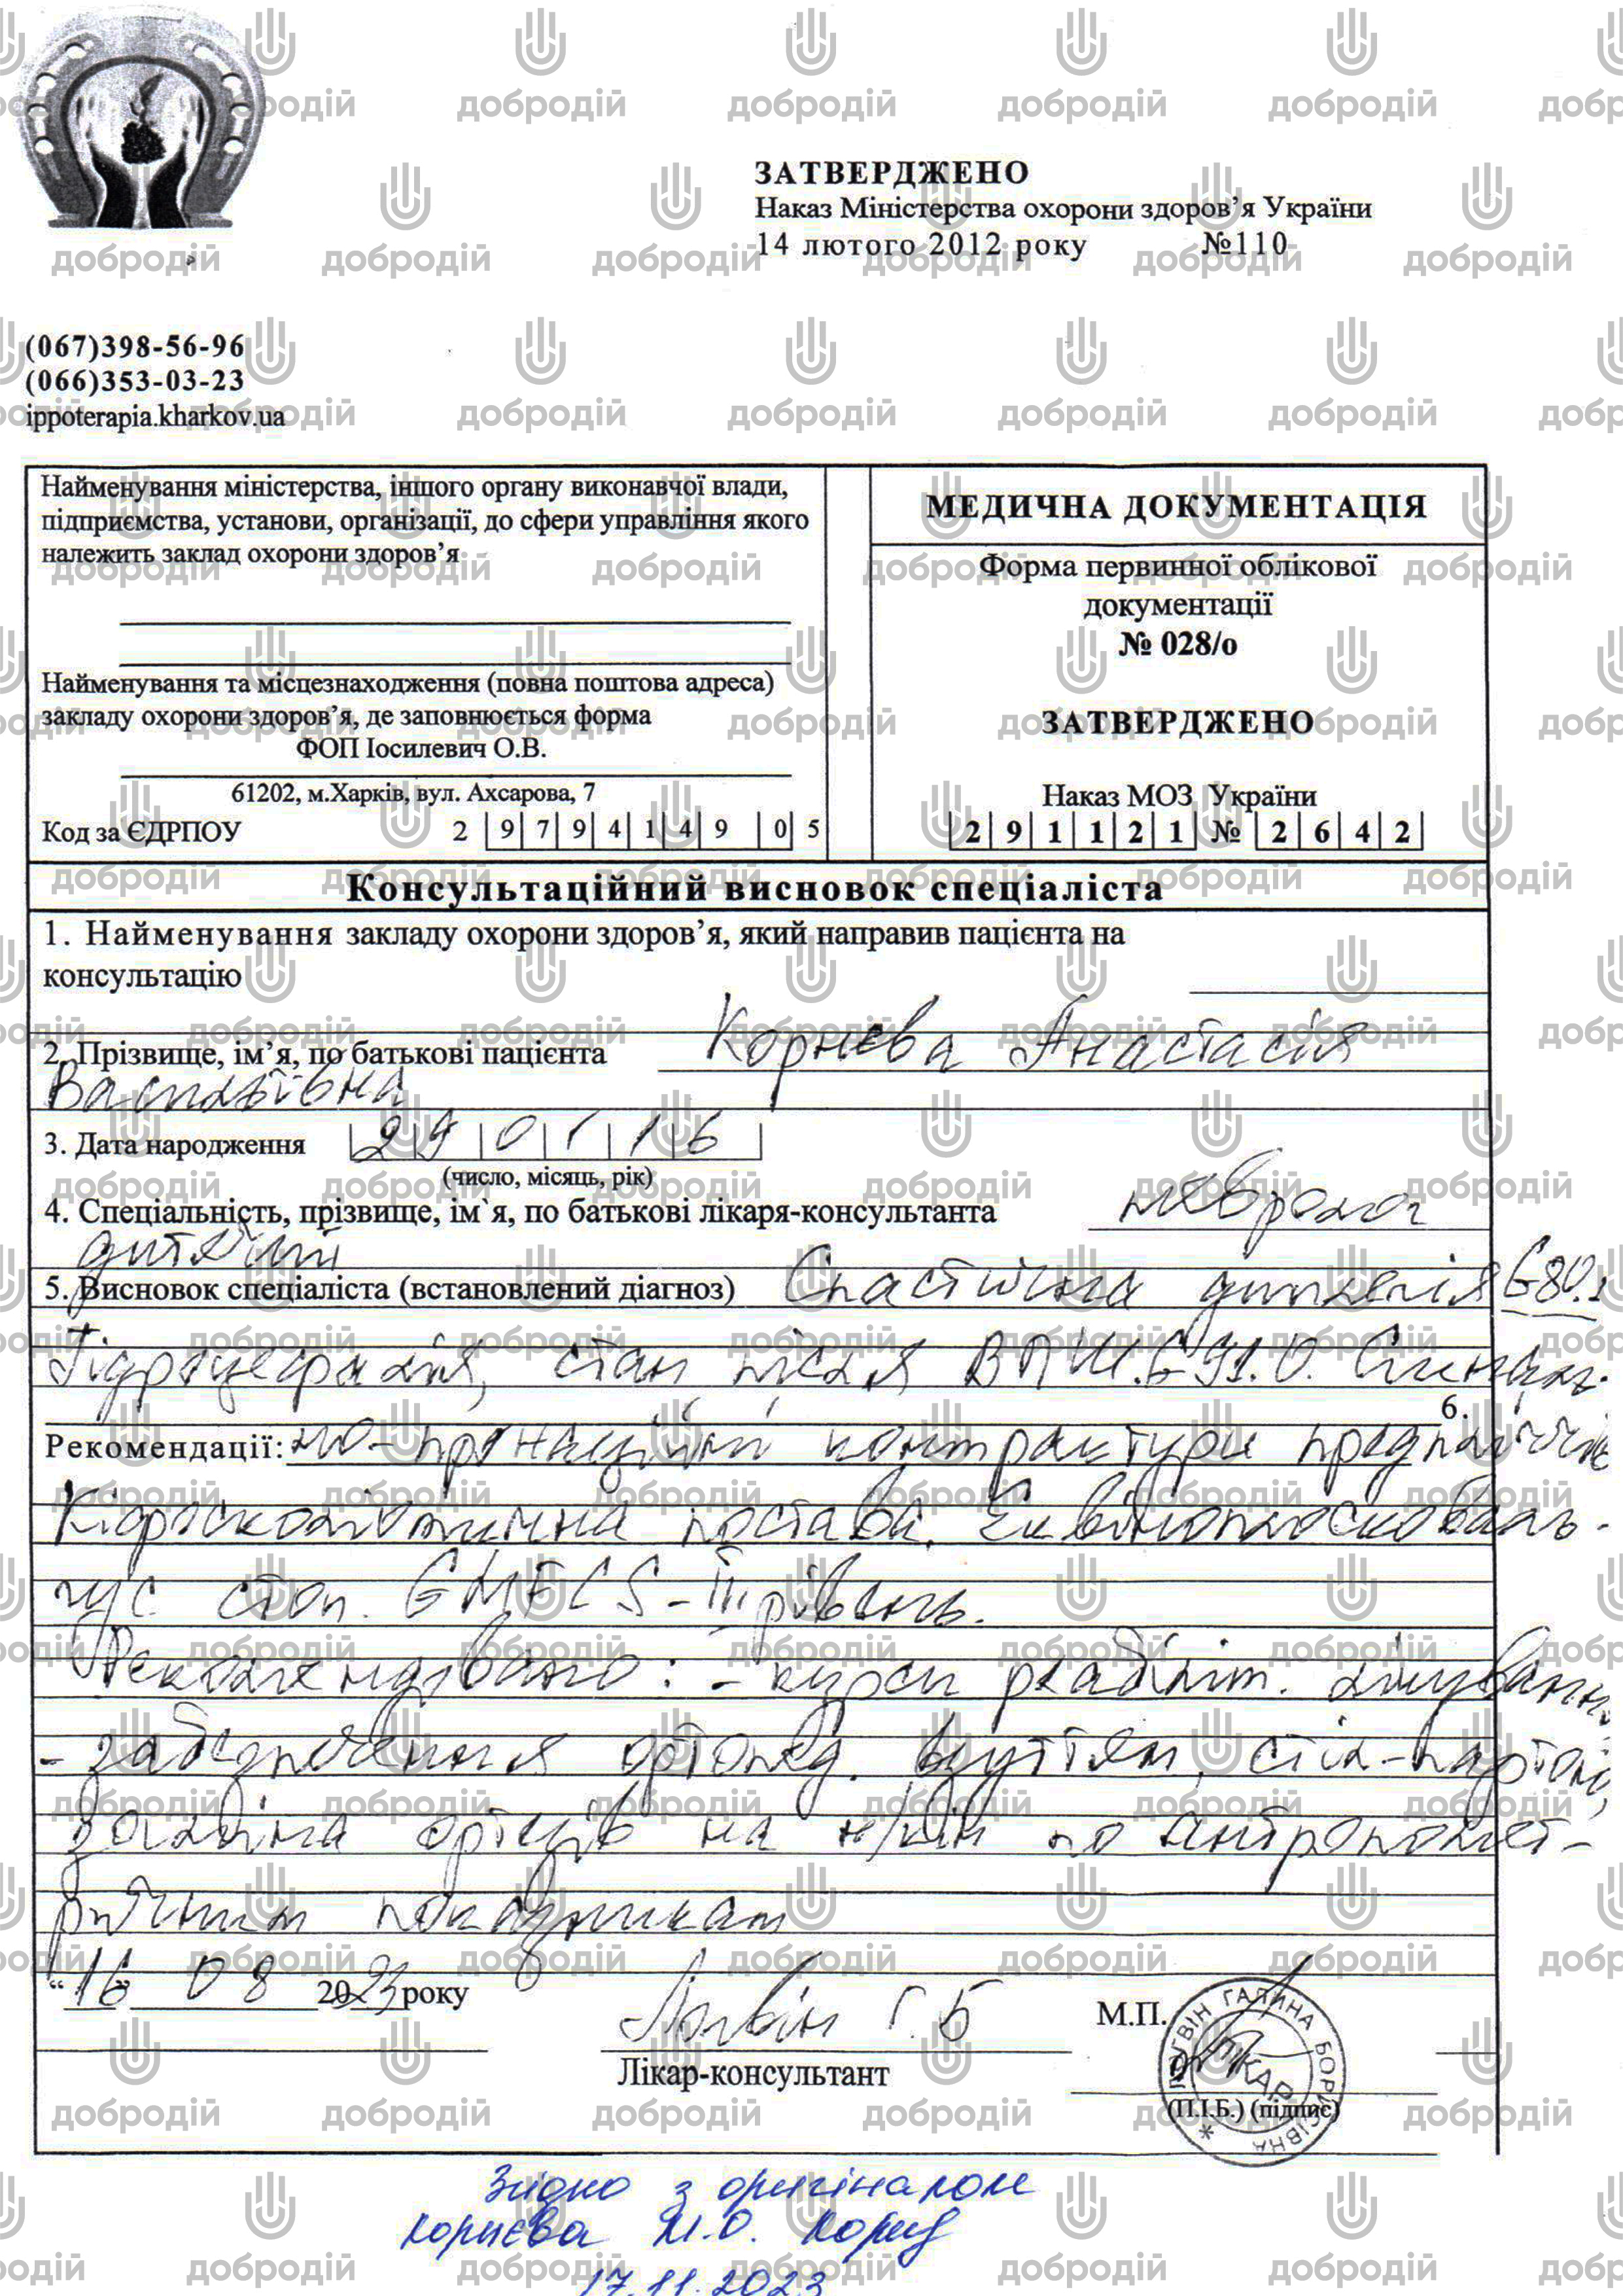 ЗАТВЕРДЖЕНО
Наказ Міністерства охорони здоров’я України
14 лютого 2012 року №110
(067)398-56-96
(066)353-03-23
ippoterapia.kharkov.ua
Найменування міністерства, іншого органу виконавчої влади,
підприємства, установи, організації, до сфери управління якого
належить заклад охорони здоров’я
Найменування та місцезнаходження (повна поштова адреса)
закладу охорони здоров’я, де заповнюється форма
ФОП Іосилевич О.В.
61202, м.Харків, вул. Ахсарова, 7
Код за ЄДРПОУ 2 9 7 9 4 1 4 9 0 5
МЕДИЧНА ДОКУМЕНТАЦІЯ
Форма первинної облікової
документації
№ 028/о
ЗАТВЕРДЖЕНО
Наказ МОЗ України
2 9 1 1 2 1 № 2 6 4 2
Консультаційний висновок спеціаліста
1. Найменування закладу охорони здоров’я, який направив пацієнта на
консультацію
2. Прізвище, ім’я, по батькові пацієнта Корнєва Анастасія
Васильівна
3. Дата народження 2 9 0 1 1 6
(число, місяць, рік)
4. Спеціальність, прізвище, ім`я, по батькові лікаря-консультанта невролог
дитячий
5. Висновок спеціаліста (встановлений діагноз) Спастична диплегія G80.1
Гідроцефалія, стан після ВПШ. G91.0. Згинальн.
6.
Рекомендації: но-пронаційні контрактури предпліччь
Кіфосколіотична постава. Еквіноплосковаль-
гус стоп. GMFCS-III рівень.
Рекомендовано: - курси реабіліт. лікування
- забезпечення ортопед. взуттям, стіл-партою,
заміна ортезів на н/кін по антропомет-
ричним показникам
“16” 08 2023 року
Логвін Г.Б
Лікар-консультант
М.П.
(П.І.Б.) (підпис)
ЛОГВІН ГАЛИНА БОРИСІВНА
ЛІКАР
Згідно з оригіналом
Корнєва М.О.
17.11.2023
добродій